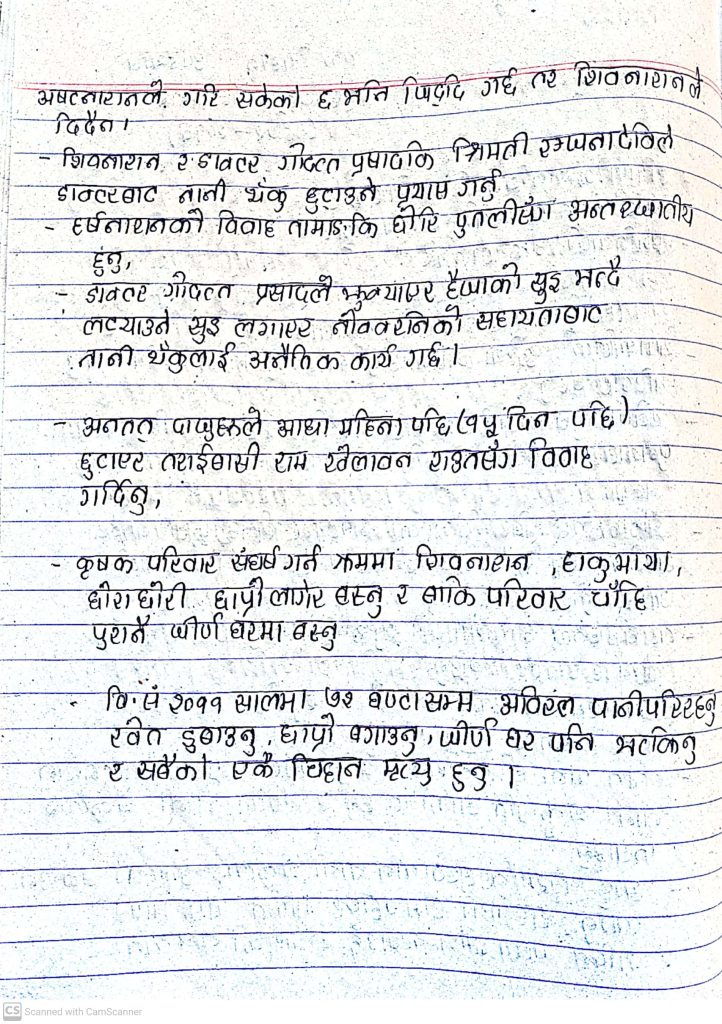 अष्टनारानले गरि सकेको छ भनि जिद्दि गर्छ तर शिवनारानले
दिदैन।
- शिवनारान र डाक्टर गोदत्त प्रषादकि श्रिमती रम्घनादेविले
डाक्टरबाट नानी थैकु छुटाउने प्रयाष गर्नु
- हर्षनारानको विवाह तामाङकि छोरि पुतलीसँग अन्तरजातीय
हुनु,
- डाक्टर गोदत्त प्रसादले झुक्याएर हैजाको सुइ भन्दै
लट्याउने सुइ लगाएर नोकरानिको सहायताबाट
नानी थैकुलाई अनैतिक कार्य गर्छ।
- अनतत् दाजुहरुले आधा महिना पछि (१५ दिन पछि)
छुटाएर तराईबासी राम खेलावन राउतसँग विवाह
गर्दिनु,
- कृषक परिवार संघर्ष गर्ने क्रममा शिवनारान, हाकुमाया,
छोराछोरी छाप्रो लगेर बस्नु र बाकि परिवार चाँहि
पुरानै जीर्ण घरमा बस्नु
- वि·सं २०११ सालमा ७२ घण्टासम्म अविरल पानीपरिरहनु
खेत डुबाउनु, छाप्रो बगाउनु, जीर्ण घर पनि भत्किनु
र सबैको एकै चिहान मृत्यु हुनु।
CS Scanned with CamScanner